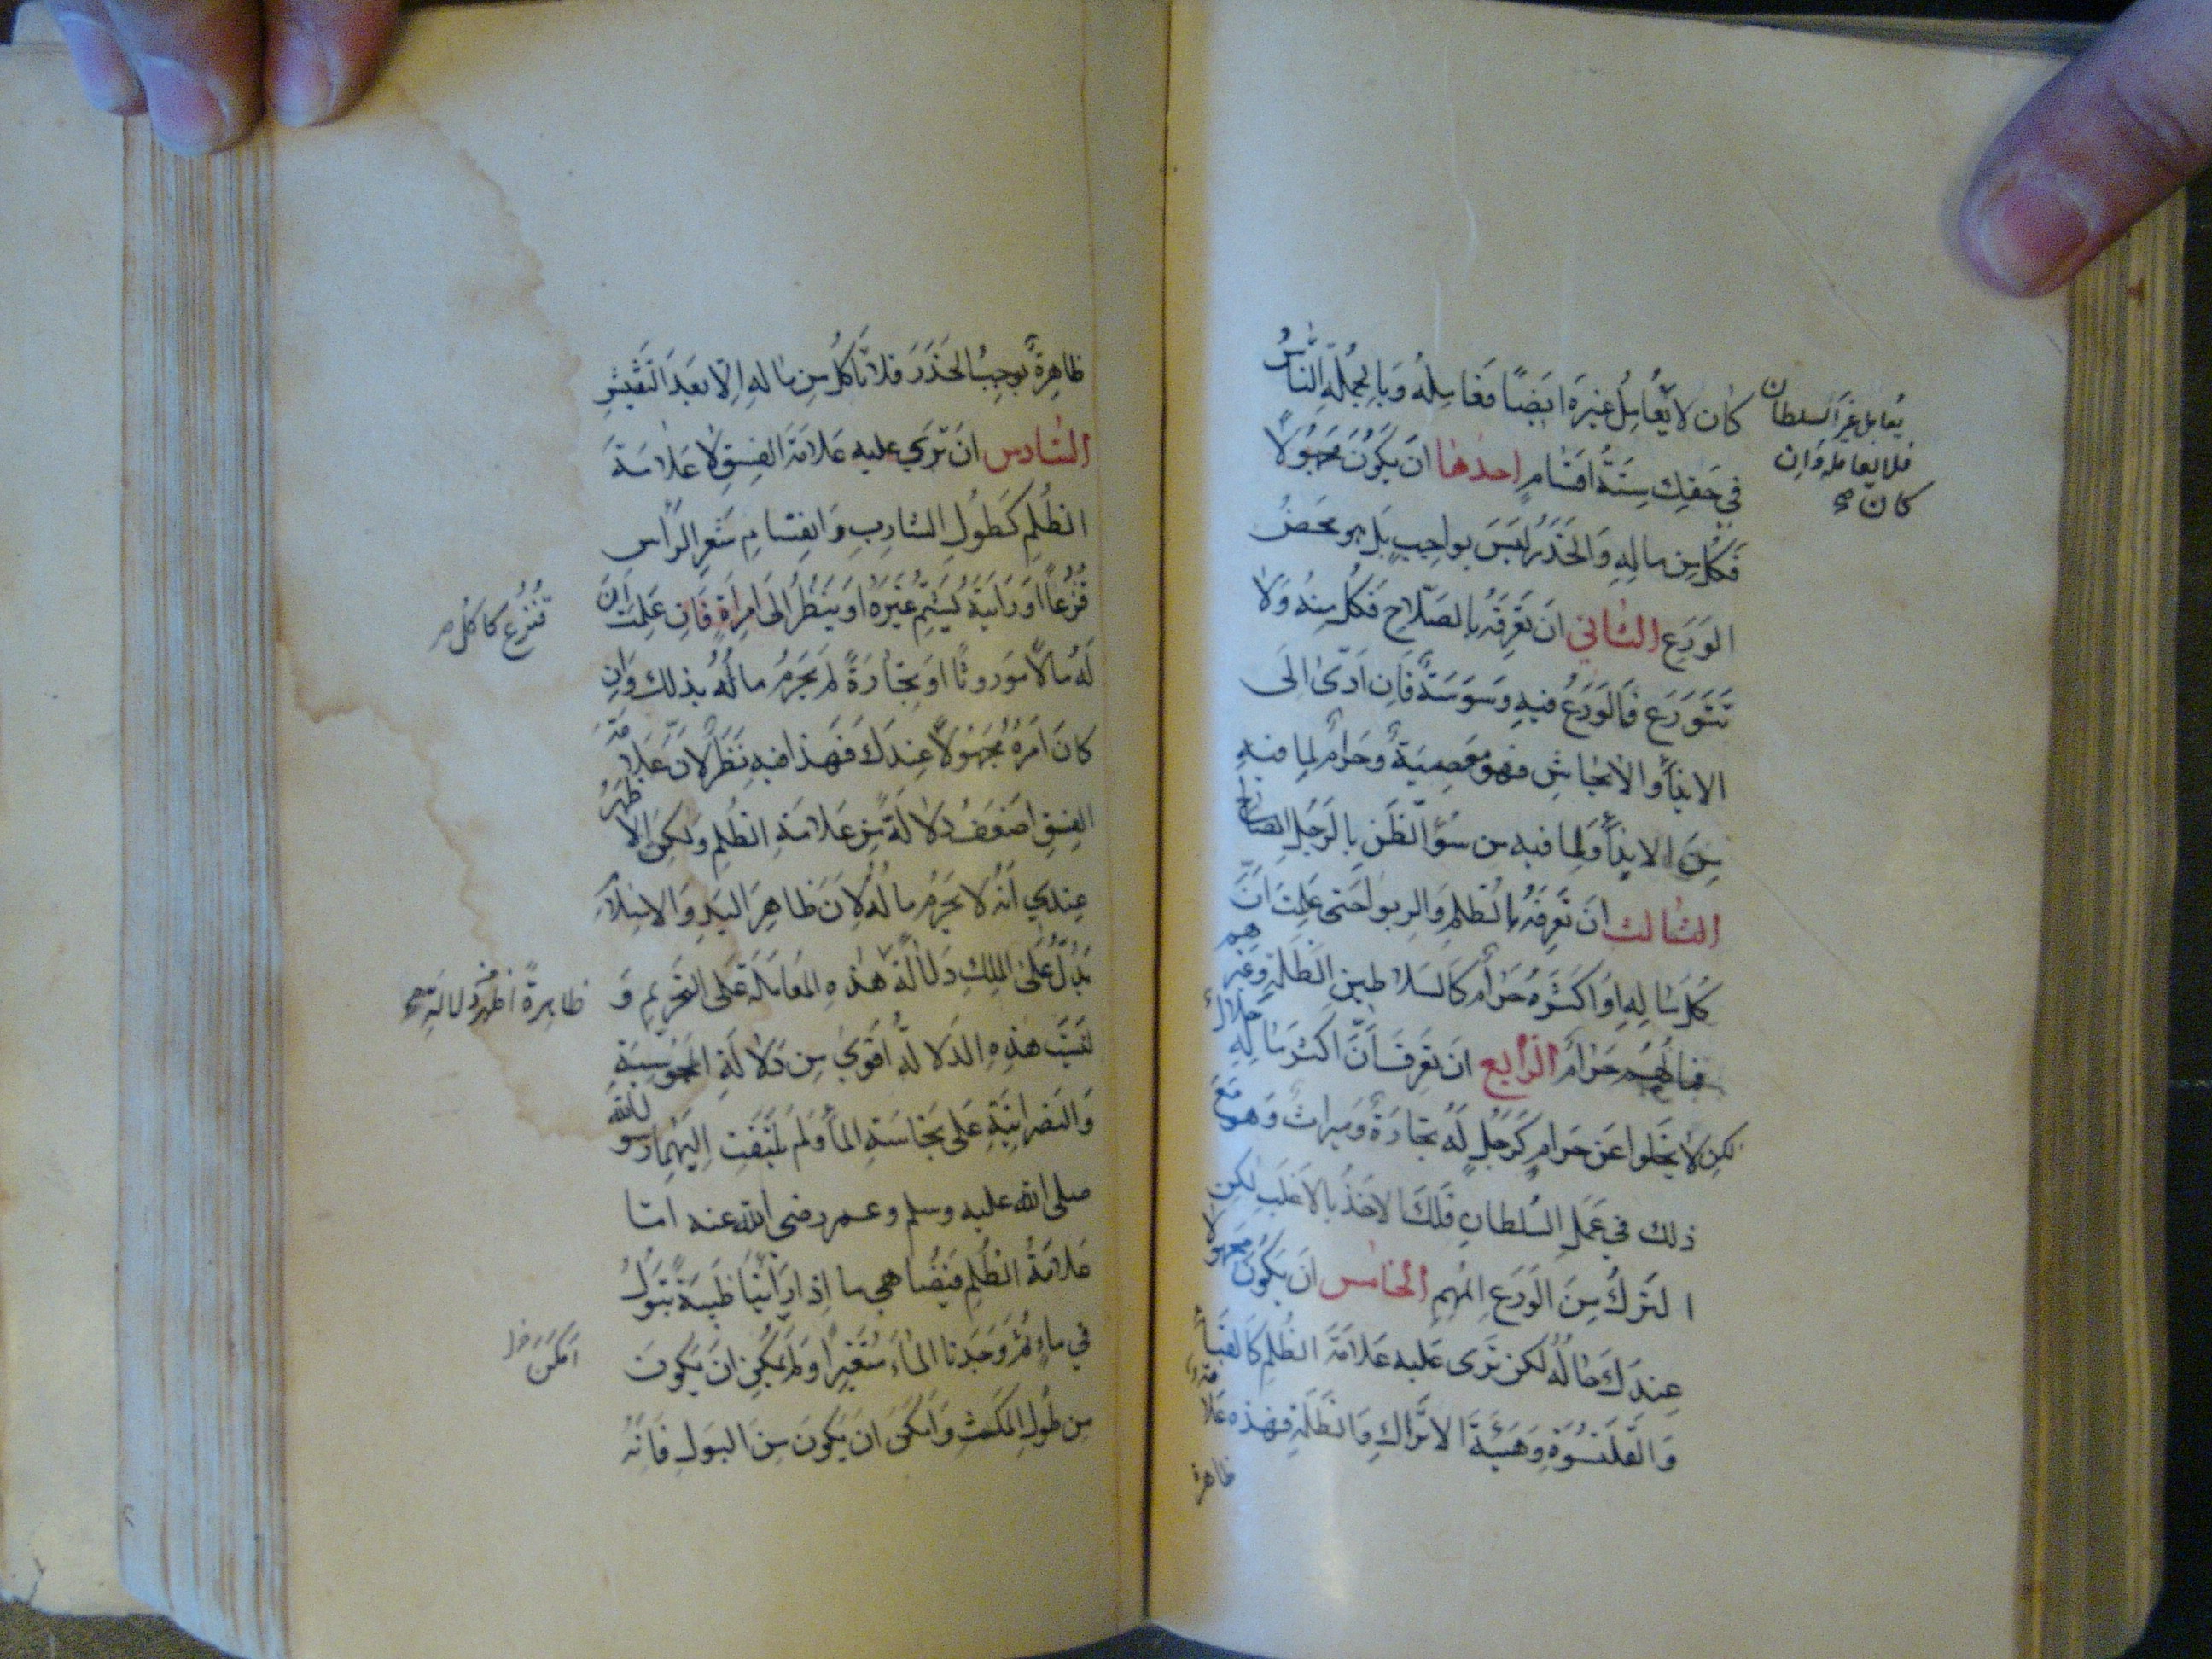 كان لا يُعامِلُ غيرَه ايضًا فَعامِلهُ وَبِالجُملَةِ النّاسُ
في حَقِك سِتَةُ اقسَامٍ احدها ان يكُونَ مجهُولاً
فَكُل مِن مالِهِ وَالحَذَرُ ليسَ بواجِبٍ بَل هو محَضُ
الوَرَعِ الثاني ان تَعرِفَهُ بِالصَلاحِ فَكُل مِنهُ وَلا
تَتَوَرَع فَالوَرَعُ فيهِ وَسوَسَةٌ فَاِن اَدّى اِلَى
الايذآءِ والايحاشِ فهو معصِيَةٌ وحَرامٌ لِما فيهِ
مِنَ الايذآءِ وَلِما فيه من سُوءِ الظَنِ بِالرَجُلِ الصالحِ
الثالث ان تَعرِفَهُ بالظلمِ وَالرِبوا حَتى عَلِمتَ اَنَّ
كُلَّ مالِهِ اَو اكثَرَهُ حَرامٌ كَالسَلاطينِ الظَلَمَةِ وغيرهم
فمالهم حَرامٌ الرابع ان تعرِفَ اَنَّ اكثرَ مالِهِ حلالٌ
لكِن لا يخلوا عَن حَرامٍ كَرَجُلٍ لَهُ تجارَةٌ وميراثٌ وَهو مَعَ
ذلك في عَمَلِ السُلطانِ فَلَكَ الاخذُ بالاغلبِ لكن
التَركُ مِنَ الوَرَعِ المُهِمِ الخامس ان يكُونَ مجهولا
عِندَكَ حالُهُ لكن تَرى عليه عَلامَةَ الظُلمِ كَالقَبآءِ
وَالقَلَنسُوَةِ وَهَيئَةِ الاتراكِ وَالظَلَمَةِ فهذه علامة
ظاهرة
يُعامل غير السلطان
فلا يعامله وَاِن
كان صح
ظاهِرَةٌ توجِبُ الحَذَرَ فلا تَأكُل مِن مالِهِ اِلا بعدَ التَفتيشِ
السادس ان تَرَي عليه عَلامَةَ الفِسقِ لا عَلامَةَ
الظُلمِ كَطولِ الشارِبِ وَانقِسامِ شَعرِ الرَأسِ
قُنزُعاً اَو رَايتَهُ يَشتِمُ غيرَهُ اَو يَنظُرُ الى امراَةٍ فَاِن عَلِمتَ اَنَّ
لَهُ مالاً مَورُوثًا او تِجارَةً لم يحرُم مالُهُ بذلك وَاِن
كانَ اَمرُهُ مجهُولاً عِندَكَ فَهذا فيهِ نَظَرٌ لانَّ عَلامَةَ
الفِسقِ اضعَفُ دلالَةً مِن عَلامَةِ الظلمِ ولكِنَ الاظهَرُ
عِندي اَنَهُ لا يحرُمُ مالُهُ لاَنَ ظاهِرَ اليَدِ وَالاسلامِ
يَدُلُّ عَلَى المِلكِ دَلالَةً هذهِ المُعامَلَة عَلى التحريمِ وَ
ليسَت هذهِ الدَلالَةُ اَقوَي مِن دَلالَةِ المجوسِيَةِ
وَالنَصرانِيَةِ عَلى نجاسَةِ المآءِ وَلم يَلتَفِت اِليهِما رسولُ الله
صلى الله عليه وسلم وعمر رضى الله عنه امّا
عَلامَةُ الظُلمِ فيُضاهي ما اِذا رَاَينا ظَبيَةً تَبُولُ
في ماءٍ ثُمَّ وَجَدنا الماءَ مُتَغَيِرًا وَلم يمكِن ان يَكونَ
مِن طُولِ المكثِ وَاَمكَنَ ان يكونَ مِنَ البَولِ فَاِنَهُ
قُنزُع كاكل
ظاهرةٌ اظهر دلالة صح
اَمكَنَ